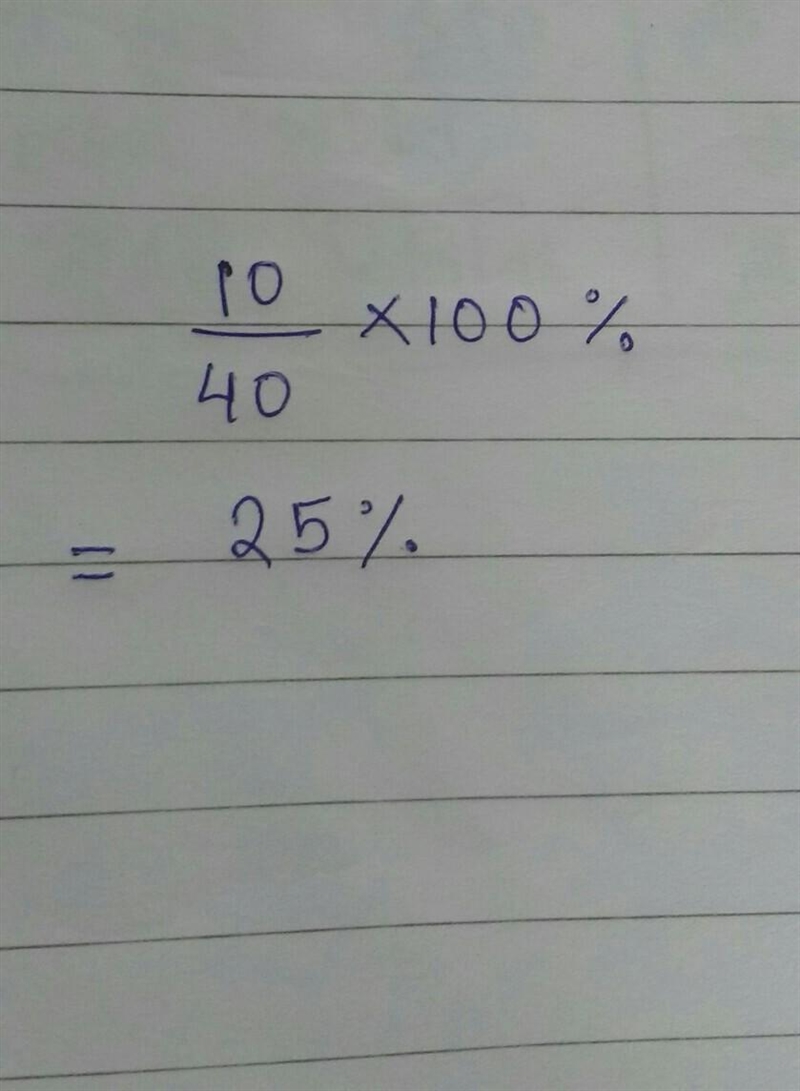 10/40 ×100 %
= 25%